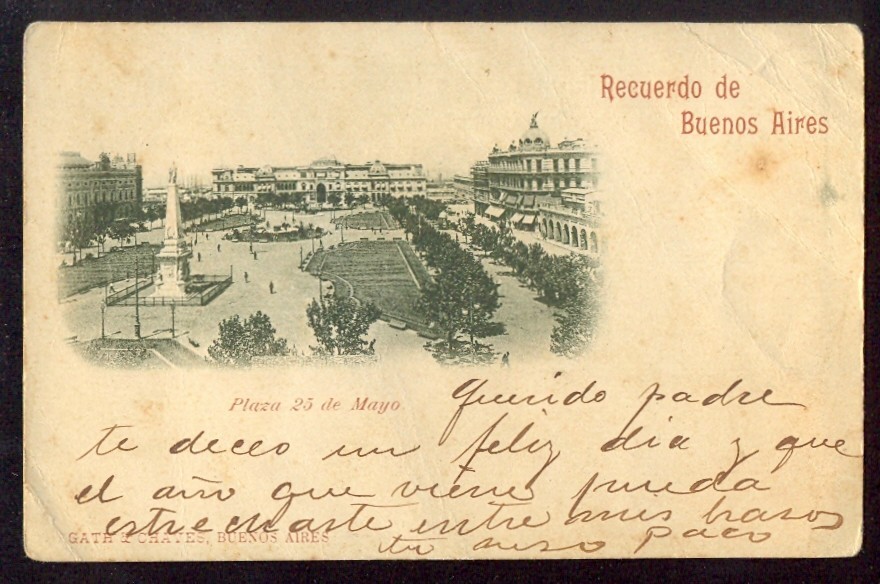 Recuerdo de
Buenos Aires
Plaza 25 de Mayo
Querido padre
te deceo un feliz dia y que
el año que viene pueda
estrecharte entre mis brasos
GATH & CHAVES, BUENOS AIRES
tu Paco